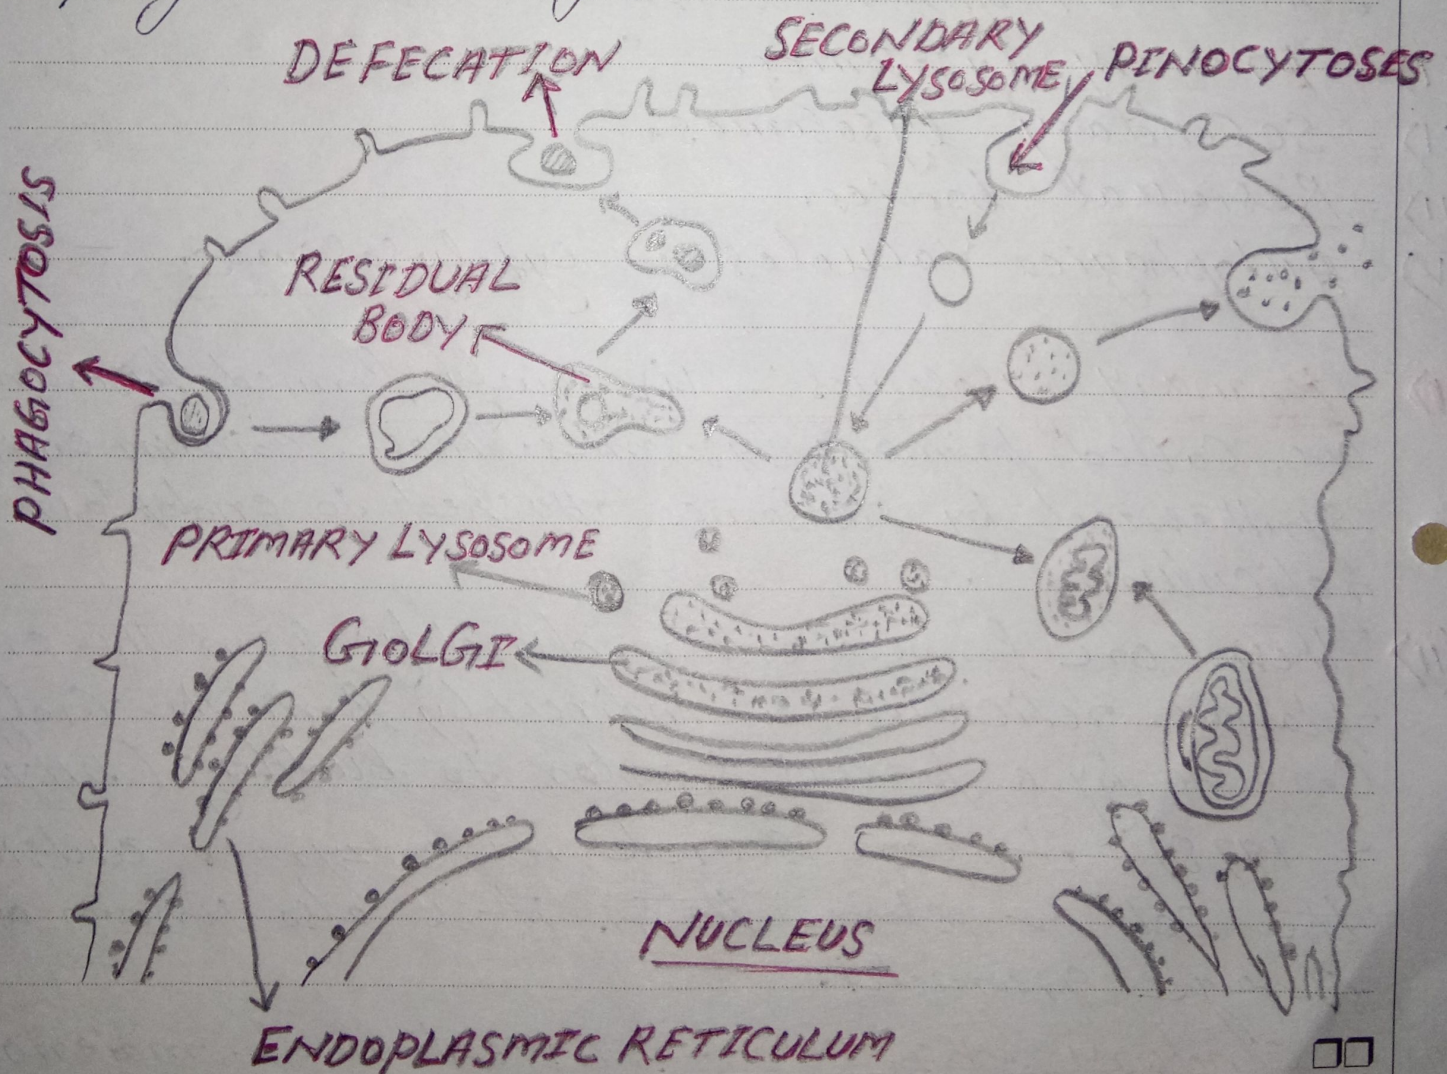 DEFECATION
SECONDARY
LYSOSOME
PINOCYTOSES
PHAGOCYTOSIS
RESIDUAL
BODY
PRIMARY LYSOSOME
GOLGI
NUCLEUS
ENDOPLASMIC RETICULUM